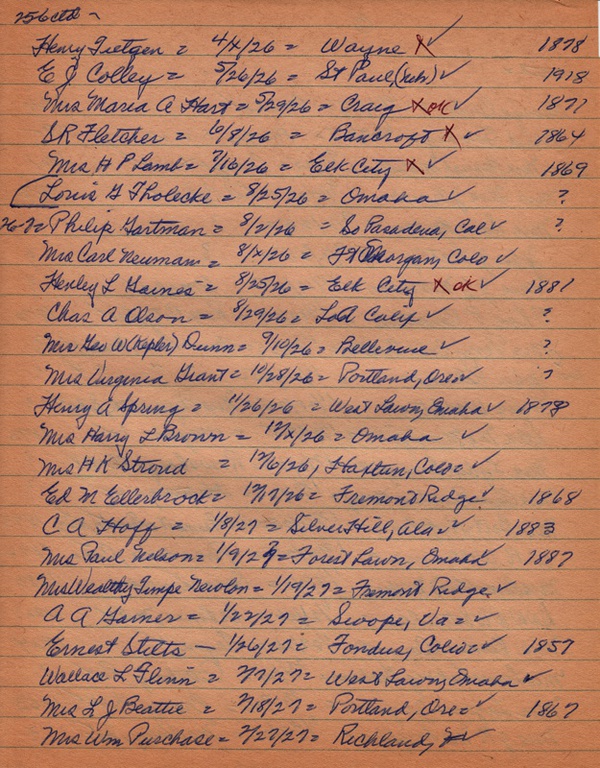 256 ctd -
Henry Tietgen = 4/x/26 = Wayne X ✓ 1878
E J Colley = 5/26/26 = St Paul, (Neb) ✓ 1918
Mrs Maria A Hart = 5/29/26 = Craig X OK ✓ 1871
S R Fletcher = 6/8/26 = Bancroft X ✓ 1864
Mrs H P Lamb = 7/16/26 = Elk City X ✓ 1869
Louis G Tholecke = 8/25/26 = Omaha ✓ ?
26-7 = Philip Gartman = 8/2/26 = So Pasadena, Cal ✓ ?
Mrs Carl Neuman = 8/x/26 = Ft Morgan, Colo ✓
Henley L Gaines = 8/25/26 = Elk City X OK ✓ 1881
Chas A Olson = 8/29/26 = Calif ✓ ?
Mrs Geo W (Kepler) Dunn = 9/10/26 = Bellevue ✓ ?
Mrs Virginia Grant = 10/28/26 = Portland, Ore ✓ ?
Henry A Spring = 11/26/26 = West Lawn, Omaha ✓ 1878
Mrs Harry L Brown = 12/x/26 = Omaha ✓
Mrs H K Stroud = 12/6/26, Haxtun, Colo = ✓
Ed M Ellerbrock = 12/17/26 = Fremont Ridge ✓ 1868
C A Hoff = 1/8/27 = Silver Hill, Ala = ✓ 1883
Mrs Paul Nelson = 1/9/27 = Forest Lawn, Omaha 1887
Mrs Wealthy Timpe Newlon = 1/19/27 = Fremont Ridge ✓
A A Garner = 1/22/27 = Swoope, Va = ✓
Ernest Stilts - 1/26/27 = Fondus, Colo = ✓ 1857
Wallace L Flinn = 2/7/27 = West Lawn, Omaha ✓
Mrs L J Beattie = 2/18/27 = Portland, Ore = ✓ 1867
Mrs Wm Purchase = 2/27/27 = Richland, ✓